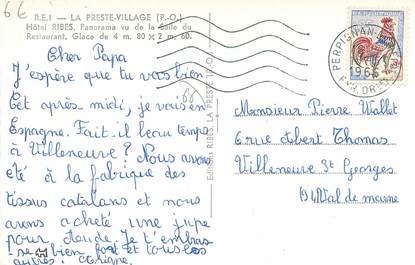 66
R.E.I - LA PRESTE-VILLAGE (P.-O.)
Hôtel RIBES. Panorama vu de la Salle du
Restaurant. Glace de 4 m. 80 x 2 m. 60.
Cher Papa
J'espère que tu vas bien
Cet après midi, je vous en
Espagne. Fait il beau temps
à Villeneuve ? Nous avons
été à la fabrique des
tissus catalans et nous
avons acheté une jupe
pour Claude. Je t'embras
se bien fort et les
autres.
66
Editions RIBES, LA PRESTE (P.-O.)
PERPIGNAN
1966
PYR. OR.
Monsieur Pierre Wallet
6 rue Albert Thomas
Villeneuve St Georges
94 Val de marne